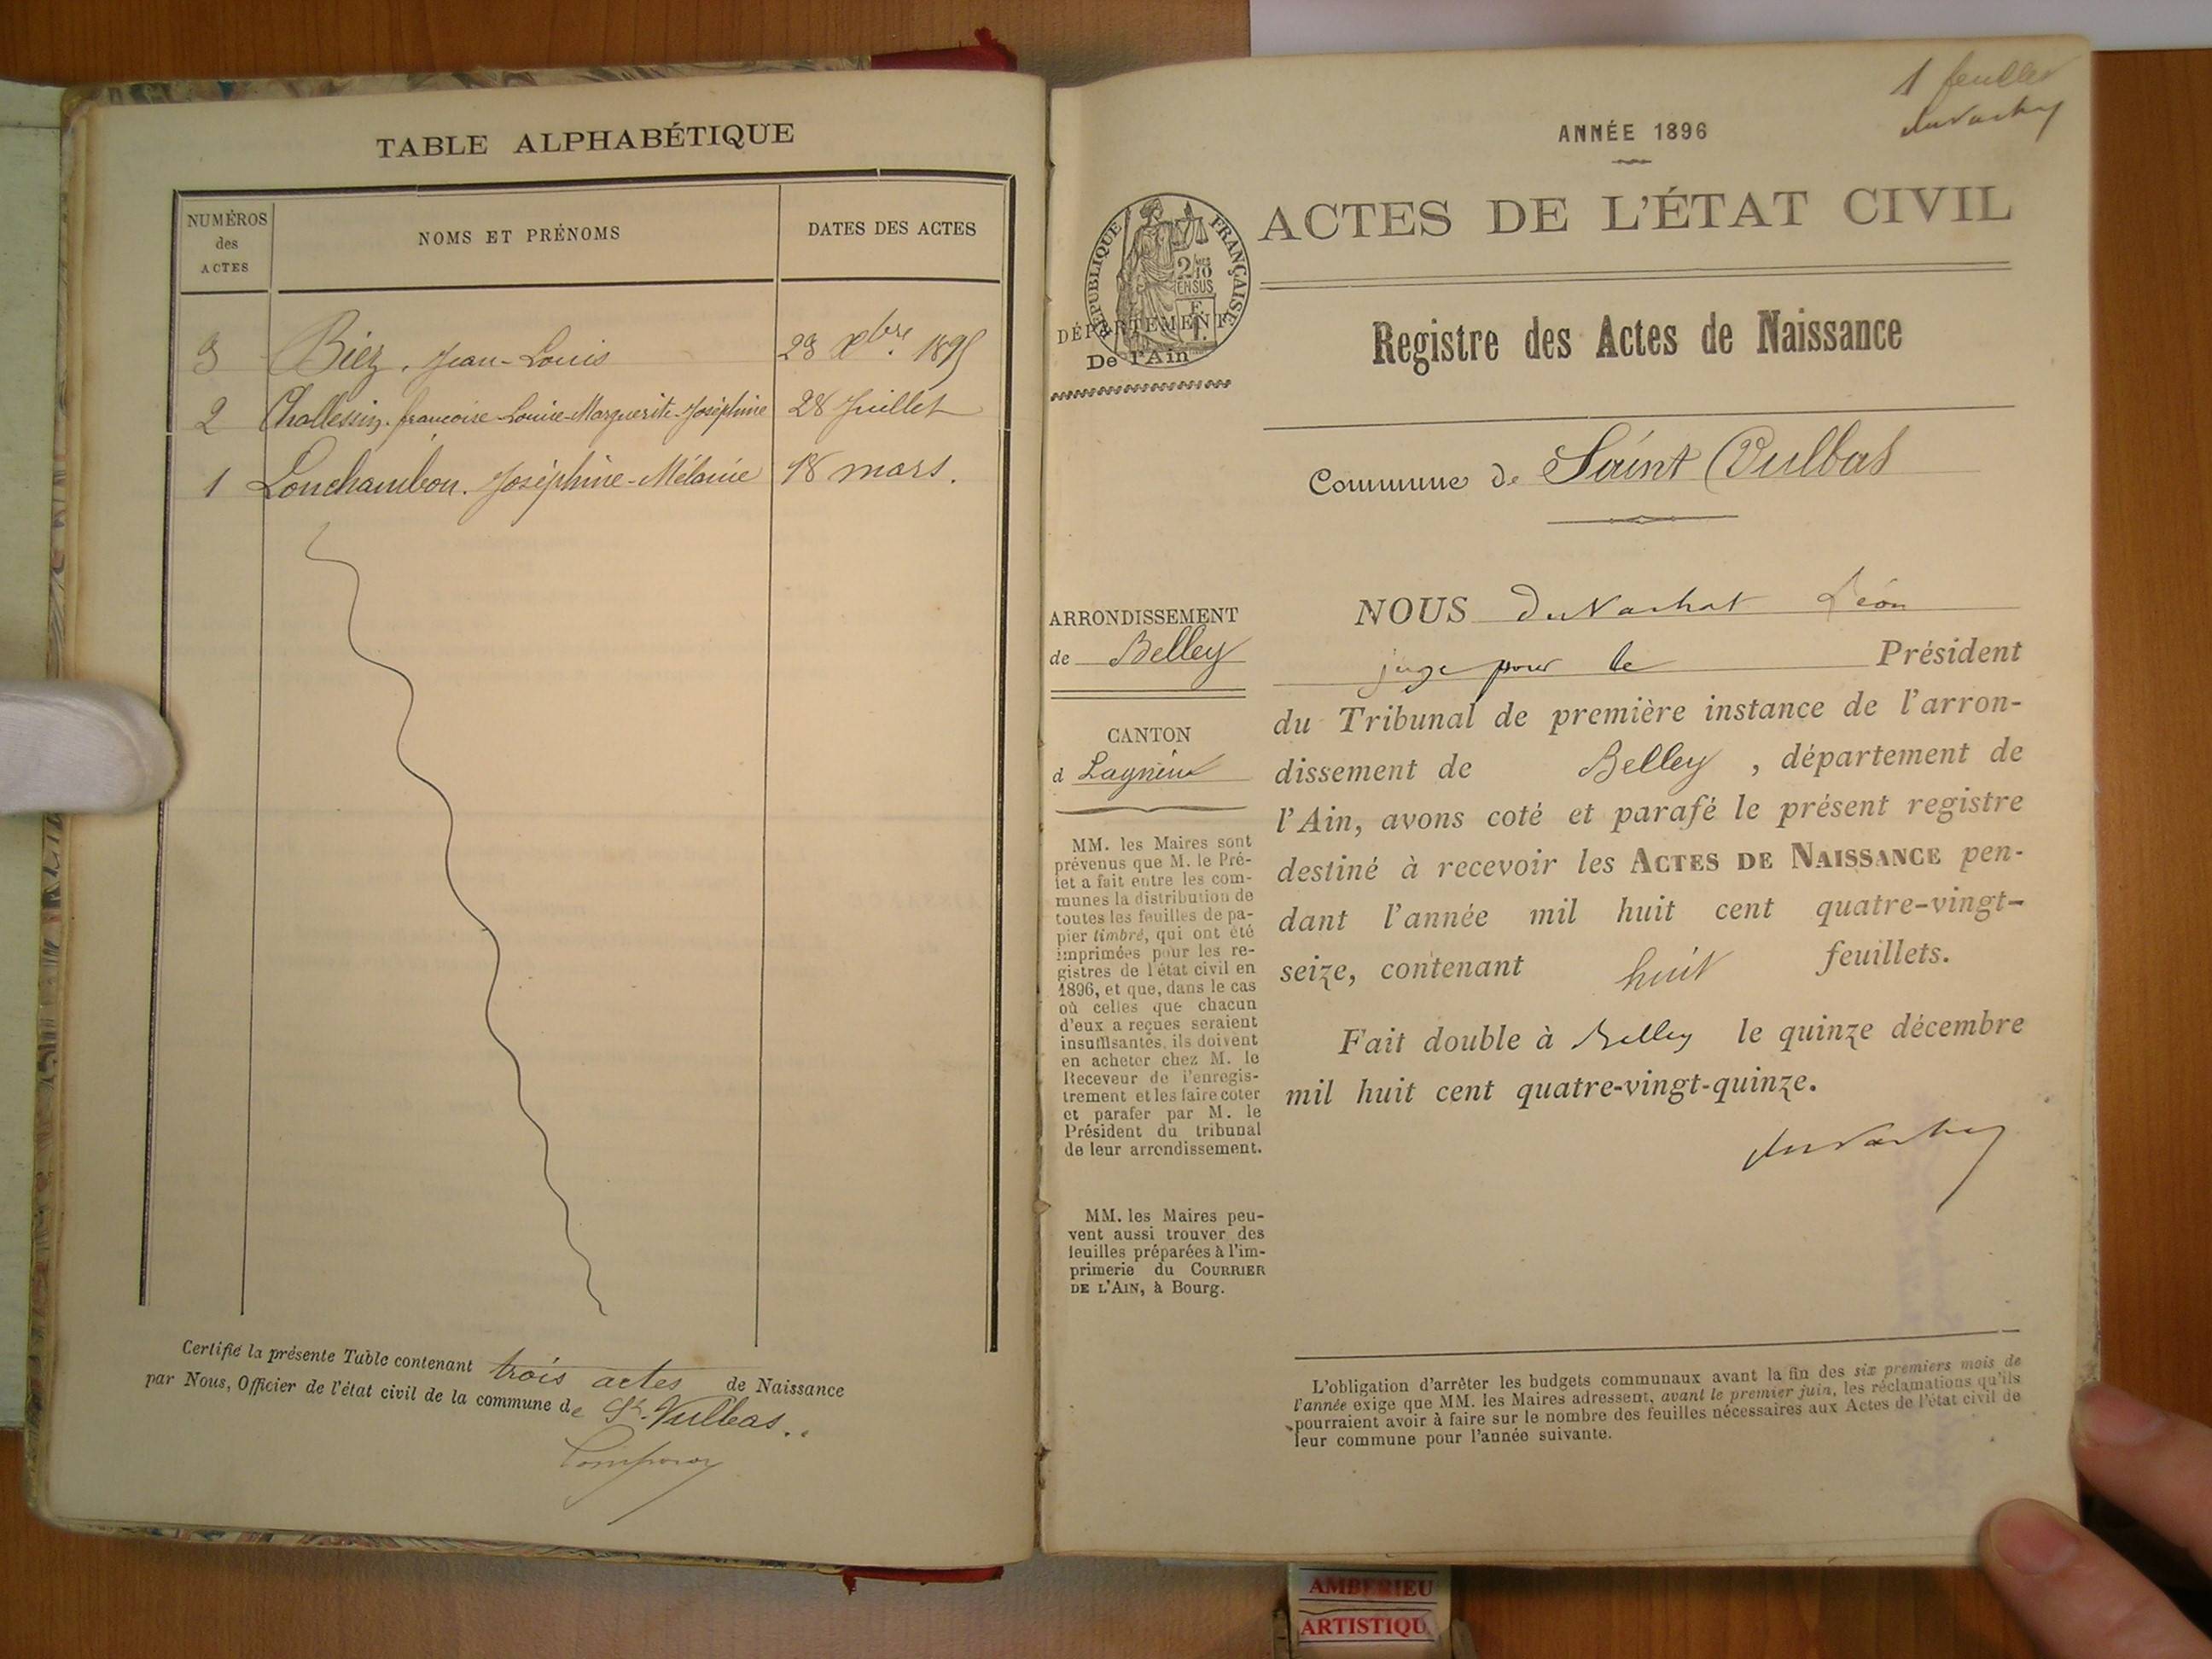 TABLE ALPHABÉTIQUE
NUMÉROS
des
ACTES
NOMS ET PRÉNOMS
DATES DES ACTES
3 Biez, Jean-Louis 23 Xbre 1895
2 Challessin, francoise-Louise-Marguerite-Joséphine 28 Juillet
1 Lonchambon. Joséphine-Mélanie 18 mars.
Certifié la présente Table contenant trois actes de Naissance
par Nous, Officier de l'état civil de la commune de St. Vulbas.
1 feuillet
ANNÉE 1896
ACTES DE L'ÉTAT CIVIL
RÉPUBLIQUE FRANÇAISE
2/10
EN SUS
DÉPARTEMENT
De l'Ain
Registre des Actes de Naissance
Commune de Saint Vulbas
ARRONDISSEMENT
de Belley
CANTON
d Lagnieu
MM. les Maires sont
prévenus que M. le Pré-
fet a fait entre les com-
munes la distribution de
toutes les feuilles de pa-
pier timbré, qui ont été
imprimées pour les re-
gistres de l'état civil en
1896, et que, dans le cas
où celles que chacun
d'eux a reçues seraient
insuffisantes, ils doivent
en acheter chez M. le
Receveur de l'enregis-
trement et les faire coter
et parafer par M. le
Président du tribunal
de leur arrondissement.
MM. les Maires peu-
vent aussi trouver des
feuilles préparées à l'im-
primerie du COURRIER
DE L'AIN, à Bourg.
NOUS duVachat Léon
juge pour le Président
du Tribunal de première instance de l'arron-
dissement de Belley, département de
l'Ain, avons coté et parafé le présent registre
destiné à recevoir les ACTES DE NAISSANCE pen-
dant l'année mil huit cent quatre-vingt-
seize, contenant huit feuillets.
Fait double à Belley le quinze décembre
mil huit cent quatre-vingt-quinze.
L'obligation d'arrêter les budgets communaux avant la fin des six premiers mois de
l'année exige que MM. les Maires adressent, avant le premier juin, les réclamations qu'ils
pourraient avoir à faire sur le nombre des feuilles nécessaires aux Actes de l'état civil de
leur commune pour l'année suivante.
AMBERIEU
ARTISTIQU